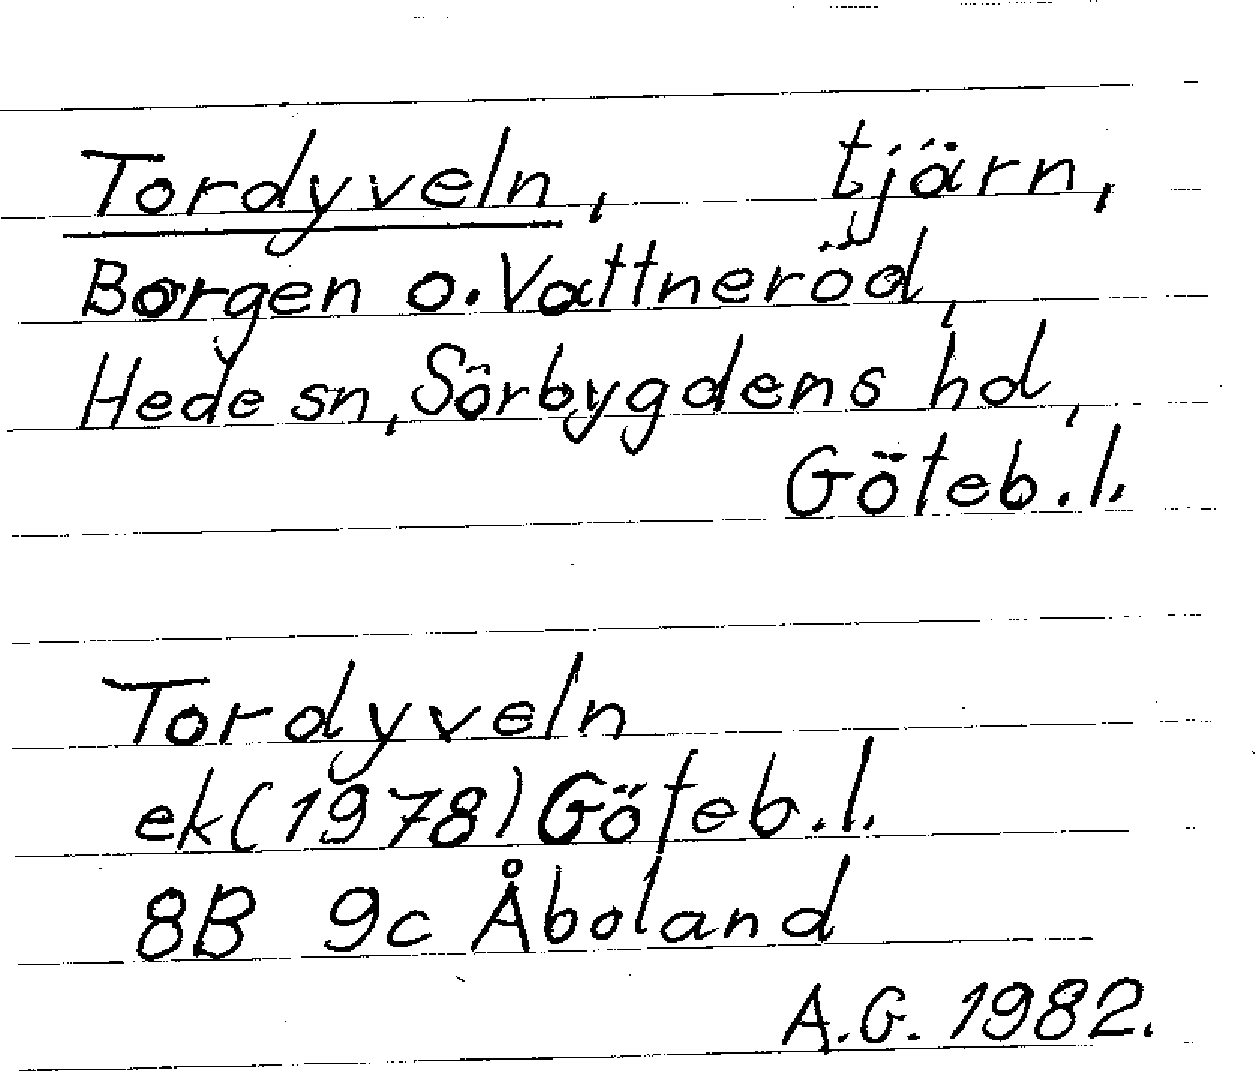 Tordyveln, tjärn,
Borgen o. Vattneröd,
Hede sn, Sörbygdens hd,
Göteb. l.
Tordyveln
ek (1978) Göteb. l.
8B 9c Åboland
A.G. 1982.